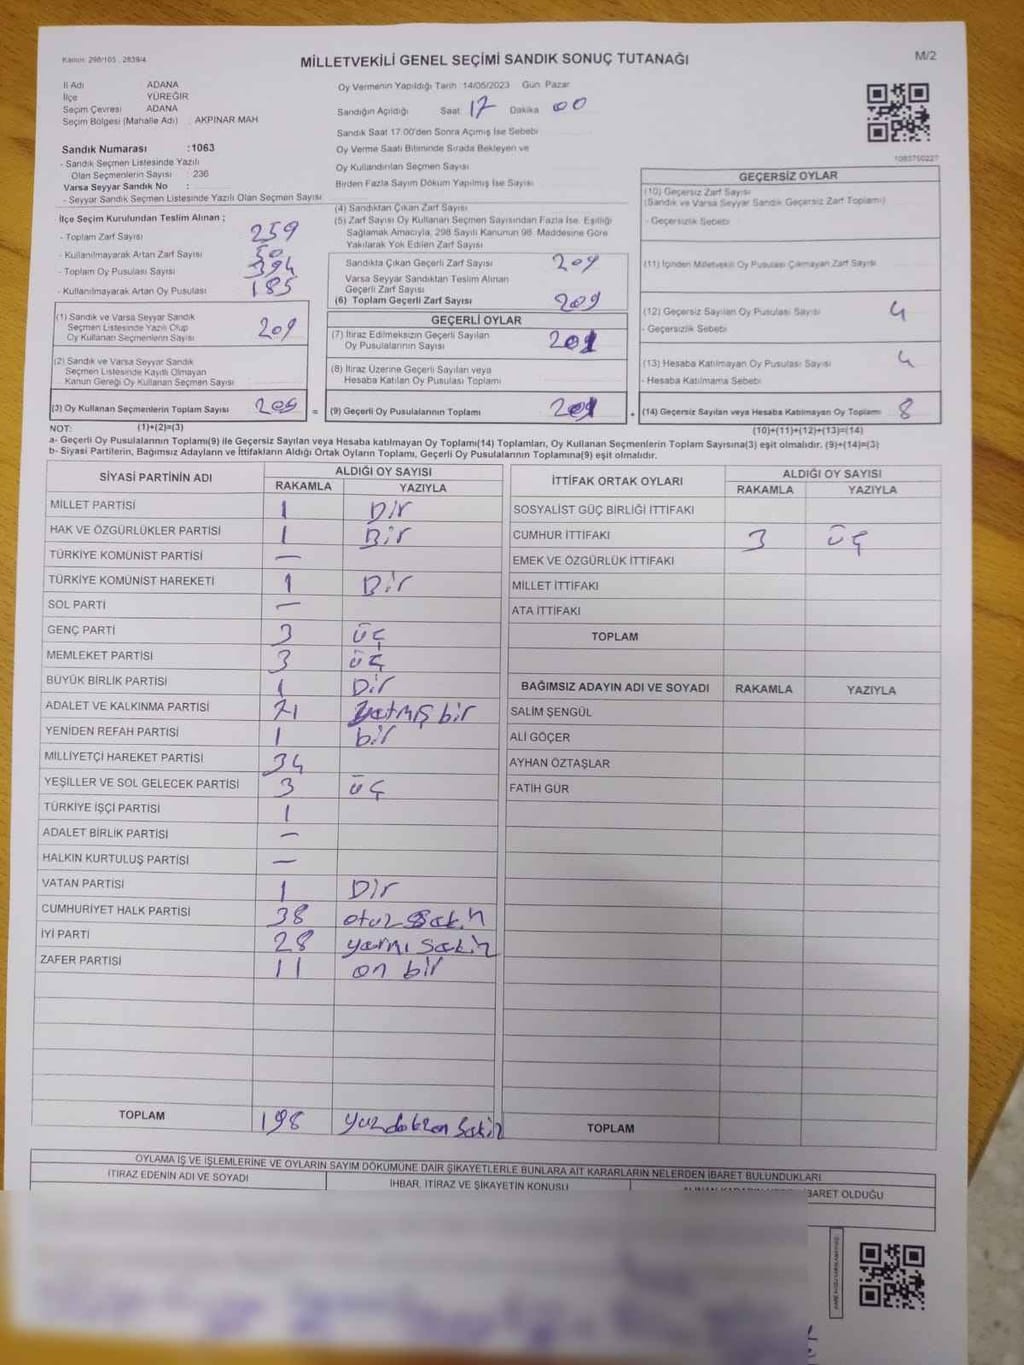 Kanun: 298/105, 2839/4
MİLLETVEKİLİ GENEL SEÇİMİ SANDIK SONUÇ TUTANAĞI
M/2
İl Adı ADANA
İlçe YÜREĞİR
Seçim Çevresi ADANA
Seçim Bölgesi (Mahalle Adı) : AKPINAR MAH
Sandık Numarası :1063
- Sandık Seçmen Listesinde Yazılı
Olan Seçmenlerin Sayısı : 236
Varsa Seyyar Sandık No :
- Seyyar Sandık Seçmen Listesinde Yazılı Olan Seçmen Sayısı
Oy Vermenin Yapıldığı Tarih :14/05/2023 Gün: Pazar
Sandığın Açıldığı Saat: 17 Dakika 00
Sandık Saat 17.00'den Sonra Açımış İse Sebebi
Oy Verme Saati Bitiminde Sırada Bekleyen ve
Oy Kullandırılan Seçmen Sayısı
Birden Fazla Sayım Döküm Yapılmış İse Sayısı
1063750227
İlçe Seçim Kurulundan Teslim Alınan ;
- Toplam Zarf Sayısı 259
- Kullanılmayarak Artan Zarf Sayısı 50
- Toplam Oy Pusulası Sayısı 394
- Kullanılmayarak Artan Oy Pusulası 185
(1) Sandık ve Varsa Seyyar Sandık
Seçmen Listesinde Yazılı Olup
Oy Kullanan Seçmenlerin Sayısı 209
(2) Sandık ve Varsa Seyyar Sandık
Seçmen Listesinde Kayıtlı Olmayan
Kanun Gereği Oy Kullanan Seçmen Sayısı
(3) Oy Kullanan Seçmenlerin Toplam Sayısı 209 =
(1)+(2)=(3)
(4) Sandıktan Çıkan Zarf Sayısı
(5) Zarf Sayısı Oy Kullanan Seçmen Sayısından Fazla İse, Eşitliği
Sağlamak Amacıyla, 298 Sayılı Kanunun 98. Maddesine Göre
Yakılarak Yok Edilen Zarf Sayısı
Sandıkta Çıkan Geçerli Zarf Sayısı 209
Varsa Seyyar Sandıktan Teslim Alınan
Geçerli Zarf Sayısı
(6) Toplam Geçerli Zarf Sayısı 209
GEÇERLİ OYLAR
(7) İtiraz Edilmeksizin Geçerli Sayılan
Oy Pusulalarının Sayısı 201
(8) İtiraz Üzerine Geçerli Sayılan veya
Hesaba Katılan Oy Pusulası Toplamı
(9) Geçerli Oy Pusulalarının Toplamı 201 +
GEÇERSİZ OYLAR
(10) Geçersiz Zarf Sayısı
(Sandık ve Varsa Seyyar Sandık Geçersiz Zarf Toplamı)
- Geçersizlik Sebebi
(11) İçinden Milletvekili Oy Pusulası Çıkmayan Zarf Sayısı
(12) Geçersiz Sayılan Oy Pusulası Sayısı 4
- Geçersizlik Sebebi
(13) Hesaba Katılmayan Oy Pusulası Sayısı 4
- Hesaba Katılmama Sebebi
(14) Geçersiz Sayılan veya Hesaba Katılmayan Oy Toplamı 8
(10)+(11)+(12)+(13)=(14)
NOT:
a- Geçerli Oy Pusulalarının Toplamı(9) ile Geçersiz Sayılan veya Hesaba katılmayan Oy Toplamı(14) Toplamları, Oy Kullanan Seçmenlerin Toplam Sayısına(3) eşit olmalıdır. (9)+(14)=(3)
b- Siyasi Partilerin, Bağımsız Adayların ve İttifakların Aldığı Ortak Oyların Toplamı, Geçerli Oy Pusulalarının Toplamına(9) eşit olmalıdır.
SİYASİ PARTİNİN ADI ALDIĞI OY SAYISI
RAKAMLA YAZIYLA
MİLLET PARTİSİ 1 Bir
HAK VE ÖZGÜRLÜKLER PARTİSİ 1 Bir
TÜRKİYE KOMÜNİST PARTİSİ —
TÜRKİYE KOMÜNİST HAREKETİ 1 Bir
SOL PARTİ —
GENÇ PARTİ 3 üç
MEMLEKET PARTİSİ 3 üç
BÜYÜK BİRLİK PARTİSİ 1 Bir
ADALET VE KALKINMA PARTİSİ 71 Yetmiş bir
YENİDEN REFAH PARTİSİ 1 bir
MİLLİYETÇİ HAREKET PARTİSİ 34
YEŞİLLER VE SOL GELECEK PARTİSİ 3 üç
TÜRKİYE İŞÇİ PARTİSİ 1
ADALET BİRLİK PARTİSİ —
HALKIN KURTULUŞ PARTİSİ —
VATAN PARTİSİ 1 Bir
CUMHURİYET HALK PARTİSİ 38 otuz sekin
İYİ PARTİ 28 yarmi sekiz
ZAFER PARTİSİ 11 on bir
TOPLAM 198 yuzdokzen sekiz
İTTİFAK ORTAK OYLARI ALDIĞI OY SAYISI
RAKAMLA YAZIYLA
SOSYALİST GÜÇ BİRLİĞİ İTTİFAKI
CUMHUR İTTİFAKI 3 üç
EMEK VE ÖZGÜRLÜK İTTİFAKI
MİLLET İTTİFAKI
ATA İTTİFAKI
TOPLAM
BAĞIMSIZ ADAYIN ADI VE SOYADI RAKAMLA YAZIYLA
SALİM ŞENGÜL
ALİ GÖÇER
AYHAN ÖZTAŞLAR
FATİH GÜR
TOPLAM
OYLAMA İŞ VE İŞLEMLERİNE VE OYLARIN SAYIM DÖKÜMÜNE DAİR ŞİKAYETLERLE BUNLARA AİT KARARLARIN NELERDEN İBARET BULUNDUKLARI
İTİRAZ EDENİN ADI VE SOYADI
İHBAR, İTİRAZ VE ŞİKAYETİN KONUSU
İBARET OLDUĞU